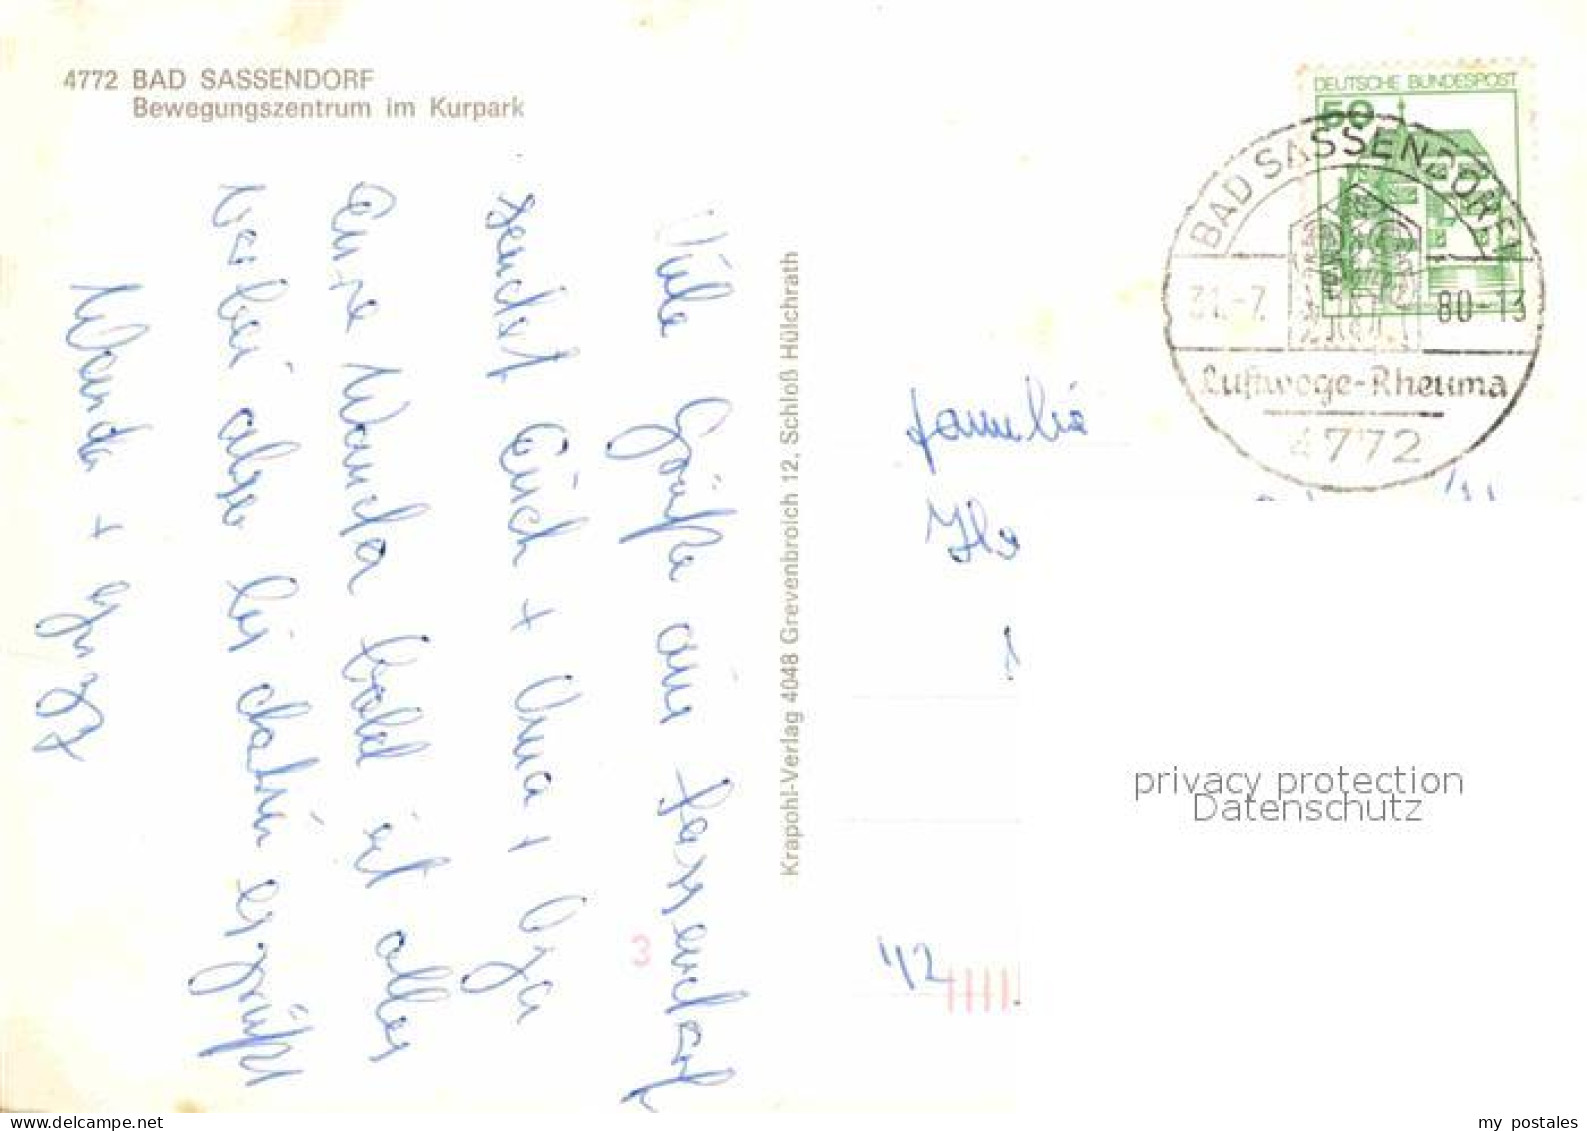 4772 BAD SASSENDORF
Bewegungszentrum im Kurpark
Viele Grüße aus Sassendorf
sendet Euch + Oma + Opa
Eure Wanda bald ist alles
vorbei aber bis dahin es grüßt
Wanda +
Krapohl-Verlag 4048 Grevenbroich 12, Schloß Hülchrath
DEUTSCHE BUNDESPOST
50
BAD SASSENDORF
31.-7. 80-13
Luftwoge-Rheuma
4772
Familie
He
privacy protection
Datenschutz
42
3
my postales